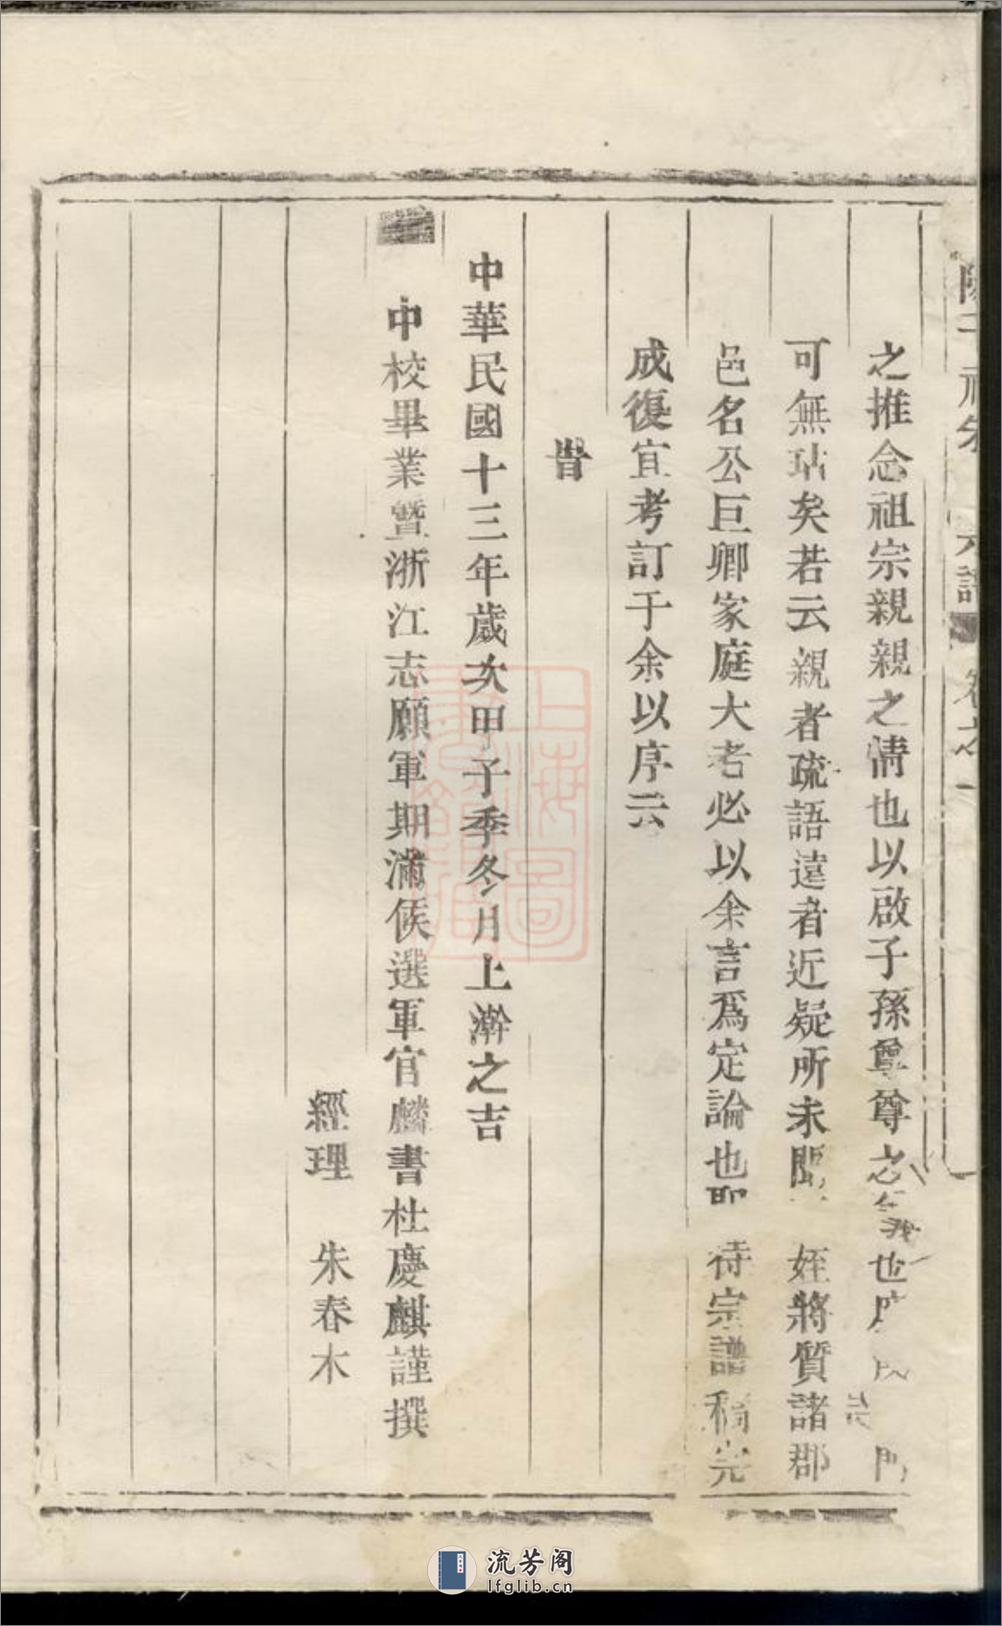 之推念祖宗親親之情也以啟子孫尊尊之義也
可無玷矣若云親者疏語遠者近疑所未 姪將質諸郡
邑名公巨卿家庭大老必以余言爲定論也 待宗譜稿完
成復宜考訂于余以序云
旹
中華民國十三年歲次甲子季冬月上澣之吉
中校畢業暨浙江志願軍期滿候選軍官麟書杜慶麒謹撰
經理 朱春木
上海圖書館藏
流芳阁
lfglib.cn